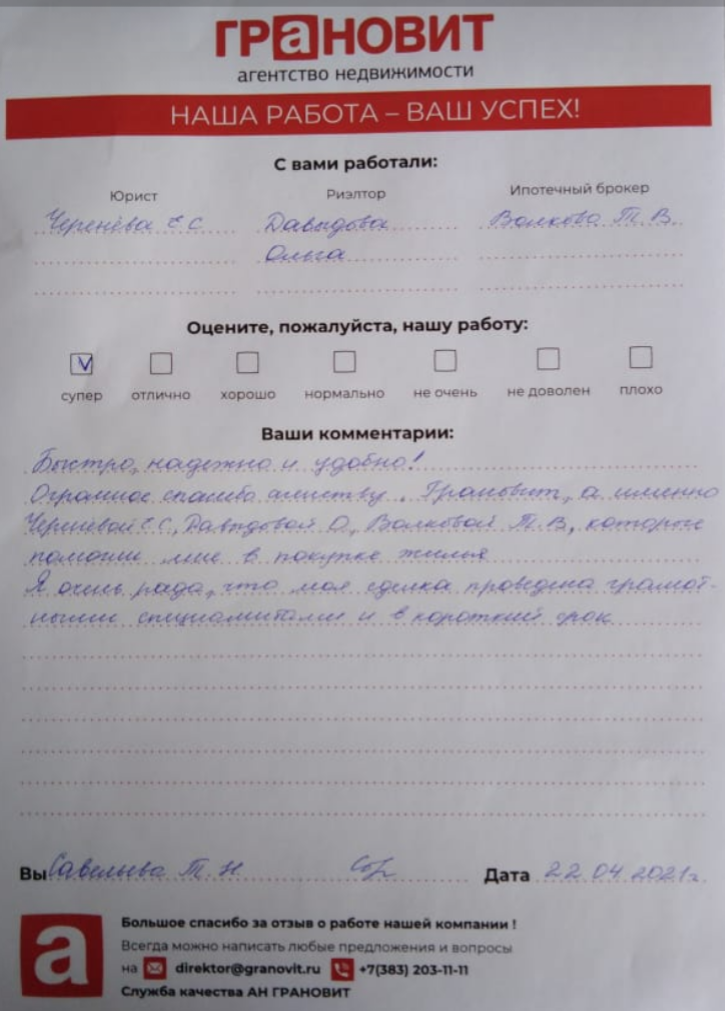 ГРаНОВИТ
агентство недвижимости
НАША РАБОТА – ВАШ УСПЕХ!
С вами работали:
Юрист Риэлтор Ипотечный брокер
Черенёва Е С Давыдова Волкова Т. В.
Ольга
Оцените, пожалуйста, нашу работу:
супер отлично хорошо нормально не очень не доволен плохо
Ваши комментарии:
Быстро, надежно и удобно!
Огромное спасибо агенству "Грановит", а именно
Черенёвой Е С, Давыдовой О, Волковой Т. В, которые
помогли мне в покупке жилья
Я очень рада, что моя сделка проведена грамот-
ными специалистами и в короткий срок
Вы Савельева Т. Н. Дата 22 04 2021г.
а
Большое спасибо за отзыв о работе нашей компании !
Всегда можно написать любые предложения и вопросы
на direktor@granovit.ru +7(383) 203-11-11
Служба качества АН ГРАНОВИТ